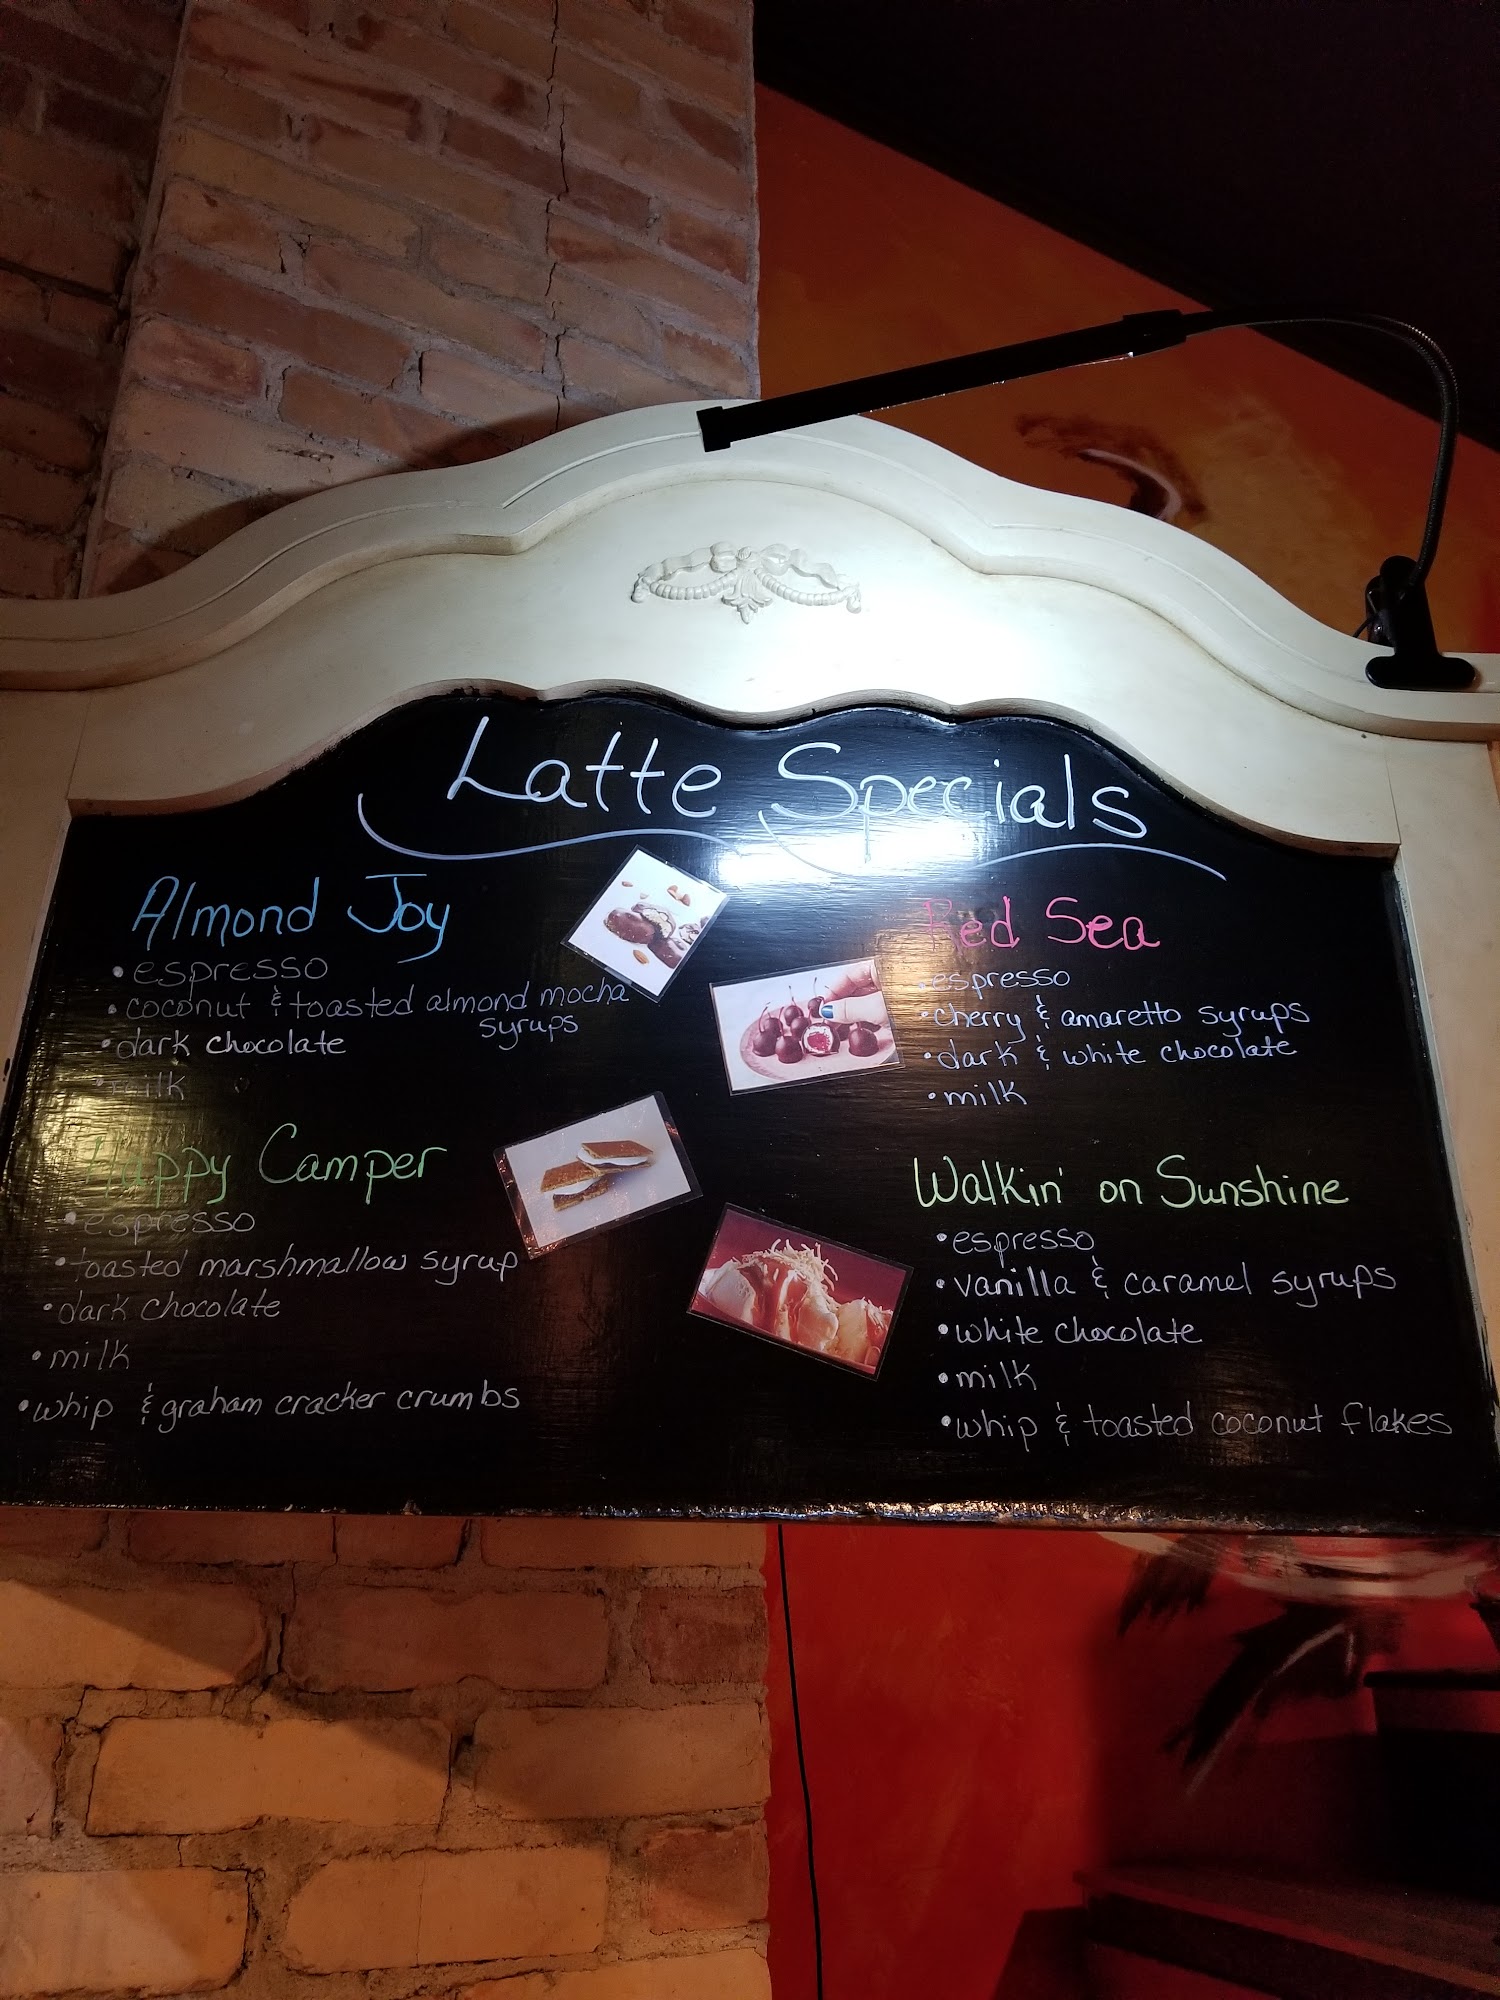 Latte Specials
Almond Joy
• espresso
• coconut & toasted almond mocha
syrups
• dark chocolate
• milk
Happy Camper
• espresso
• toasted marshmallow syrup
• dark chocolate
• milk
• whip & graham cracker crumbs
Red Sea
• espresso
• cherry & amaretto syrups
• dark & white chocolate
• milk
Walkin' on Sunshine
• espresso
• vanilla & caramel syrups
• white chocolate
• milk
• whip & toasted coconut flakes